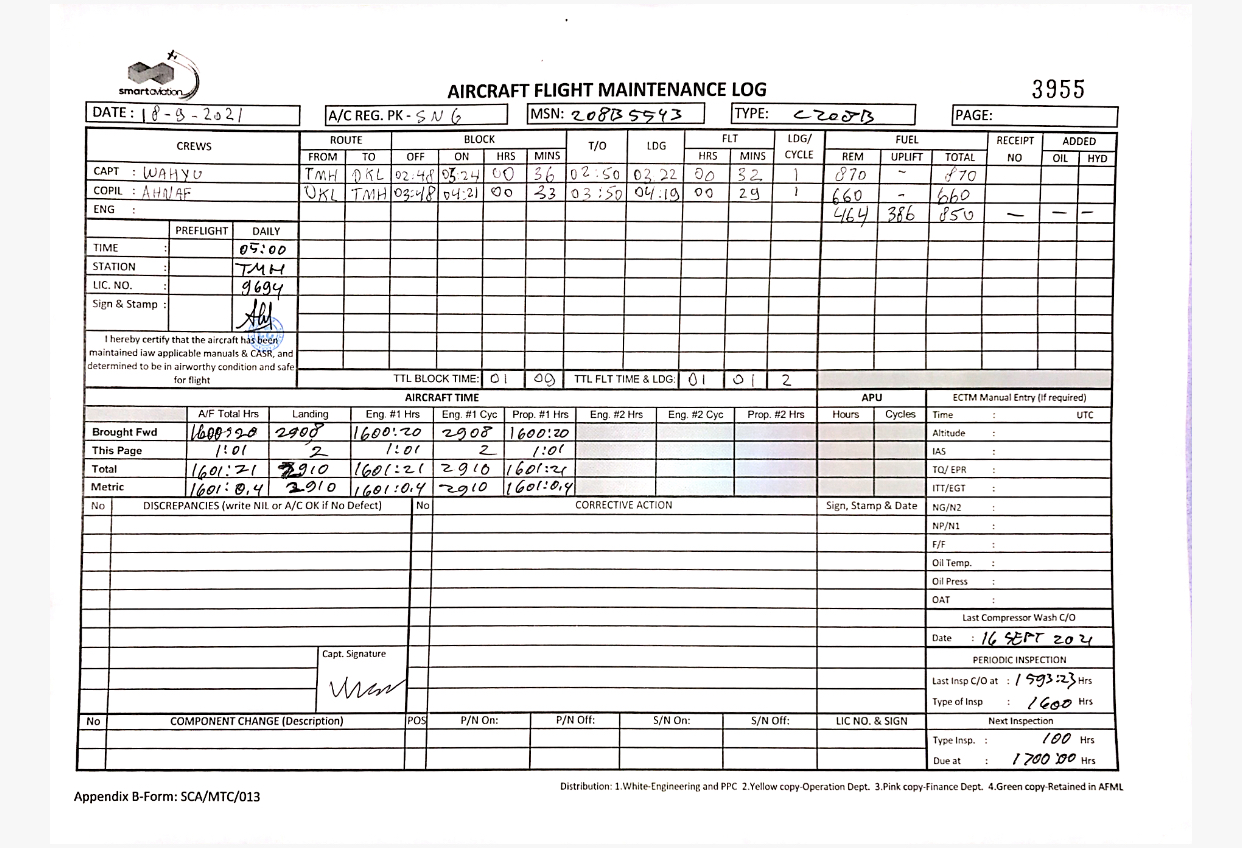 smartaviation
AIRCRAFT FLIGHT MAINTENANCE LOG
3955
DATE : 18-9-2021
A/C REG. PK - SNG
MSN: 208B5543
TYPE: C208B
PAGE:
CREWS ROUTE BLOCK T/O LDG FLT LDG/ CYCLE FUEL RECEIPT NO ADDED
FROM TO OFF ON HRS MINS HRS MINS REM UPLIFT TOTAL OIL HYD
CAPT : WAHYU TMH DKL 02:48 03:24 00 36 02:50 03,22 00 32 1 870 - 870
COPIL : AHNAF DKL TMH 03:48 04:21 00 33 03:50 04:19 00 29 1 660 - 660
ENG : 464 386 850 — — —
PREFLIGHT DAILY
TIME : 05:00
STATION : TMH
LIC. NO. : 9694
Sign & Stamp :
I hereby certify that the aircraft has been
maintained iaw applicable manuals & CASR, and
determined to be in airworthy condition and safe
for flight
TTL BLOCK TIME: 01 09 TTL FLT TIME & LDG: 01 01 2
AIRCRAFT TIME APU ECTM Manual Entry (If required)
A/F Total Hrs Landing Eng. #1 Hrs Eng. #1 Cyc Prop. #1 Hrs Eng. #2 Hrs Eng. #2 Cyc Prop. #2 Hrs Hours Cycles Time : UTC
Brought Fwd 1600:20 2908 1600:20 2908 1600:20 Altitude :
This Page 1:01 2 1:01 2 1:01 IAS :
Total 1601:21 2910 1601:21 2910 1601:21 TQ/ EPR :
Metric 1601:0,4 2910 1601:0,4 2910 1601:0,4 ITT/EGT :
No DISCREPANCIES (write NIL or A/C OK if No Defect) No CORRECTIVE ACTION Sign, Stamp & Date NG/N2 :
NP/N1 :
F/F :
Oil Temp. :
Oil Press :
OAT :
Last Compressor Wash C/O
Date : 16 SEPT 2021
Capt. Signature
PERIODIC INSPECTION
Last Insp C/O at : 1593:23 Hrs
Type of Insp : 1600 Hrs
No COMPONENT CHANGE (Description) POS P/N On: P/N Off: S/N On: S/N Off: LIC NO. & SIGN Next Inspection
Type Insp. : 100 Hrs
Due at : 1700:00 Hrs
Distribution: 1.White-Engineering and PPC 2.Yellow copy-Operation Dept. 3.Pink copy-Finance Dept. 4.Green copy-Retained in AFML
Appendix B-Form: SCA/MTC/013